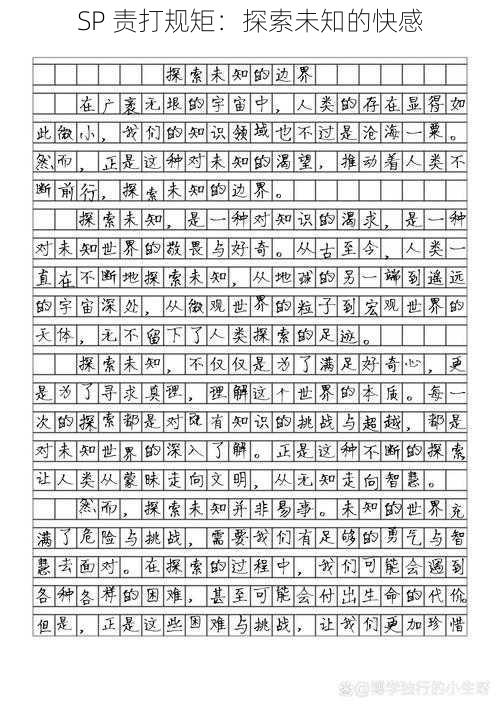 SP 责打规矩：探索未知的快感
探索未知的边界
在广袤无垠的宇宙中，人类的存在显得如
此微小，我们的知识领域也不过是沧海一粟。
然而，正是这种对未知的渴望，推动着人类不
断前行，探索未知的边界。
探索未知，是一种对知识的渴求，是一种
对未知世界的敬畏与好奇。从古至今，人类一
直在不断地探索未知，从地球的另一端到遥远
的宇宙深处，从微观世界的粒子到宏观世界的
天体，无不留下了人类探索的足迹。
探索未知，不仅仅是为了满足好奇心，更
是为了寻求真理，理解这个世界的本质。每一
次的探索都是对既有知识的挑战与超越，都是
对未知世界的深入了解。正是这种不断的探索
让人类从蒙昧走向文明，从无知走向智慧。
然而，探索未知并非易事。未知的世界充
满了危险与挑战，需要我们有足够的勇气与智
慧去面对。在探索的过程中，我们可能会遇到
各种各样的困难，甚至可能会付出生命的代价。
但是，正是这些困难与挑战，让我们更加珍惜
@博学独行的小生呀